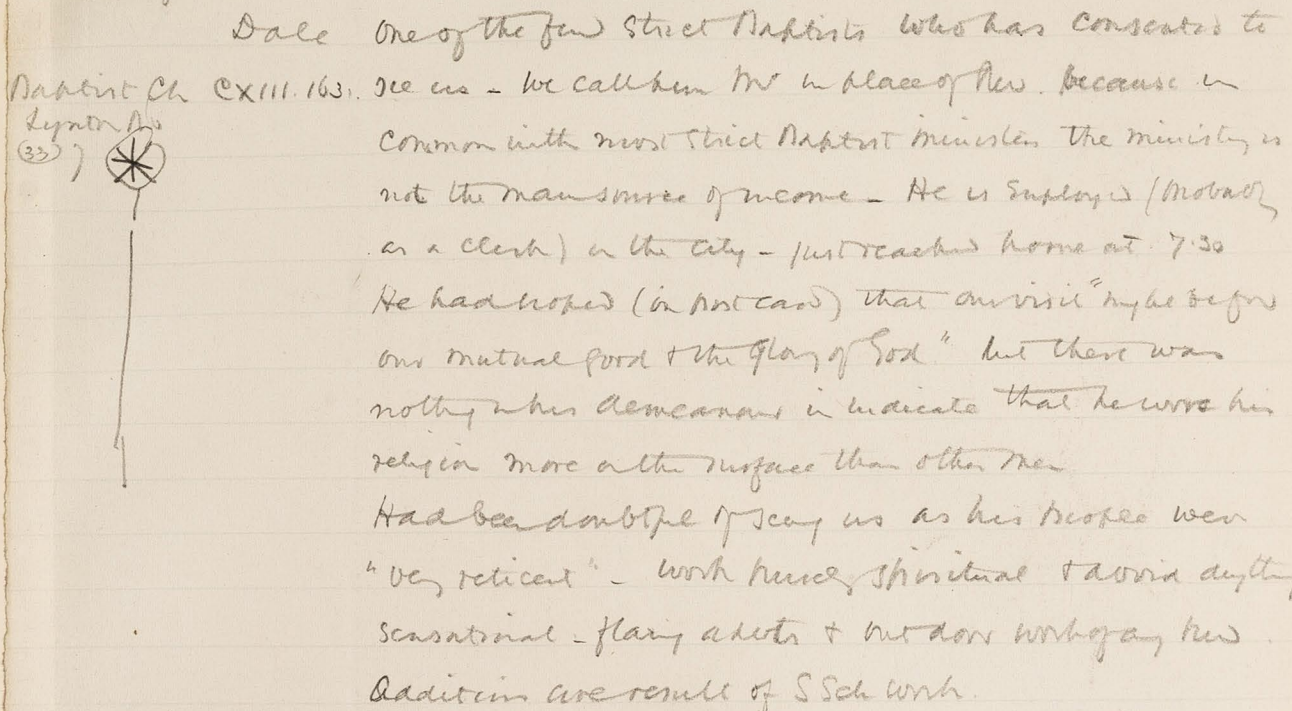 Dale One of the few Strict Baptists who has consented to
Baptist Ch CXIII. 163. see us - We call him Mr in place of Rev. because in
Lynton Rd
(33) common with most Strict Baptist ministers the ministry is
not the main source of income - He is employed (probably
as a clerk) in the city - just reached home at 7.30
He had hoped (in post card) that our visit "may be to
our mutual good & the glory of God" but there was
nothing in his demeanour to indicate that he wore his
religion more on the surface than other men
Had been doubtful of seeing us as his people were
"very reticent" - work purely spiritual & avoid anything
sensational - flaring adverts & out door work of any kind
Additions are result of S Sch work.